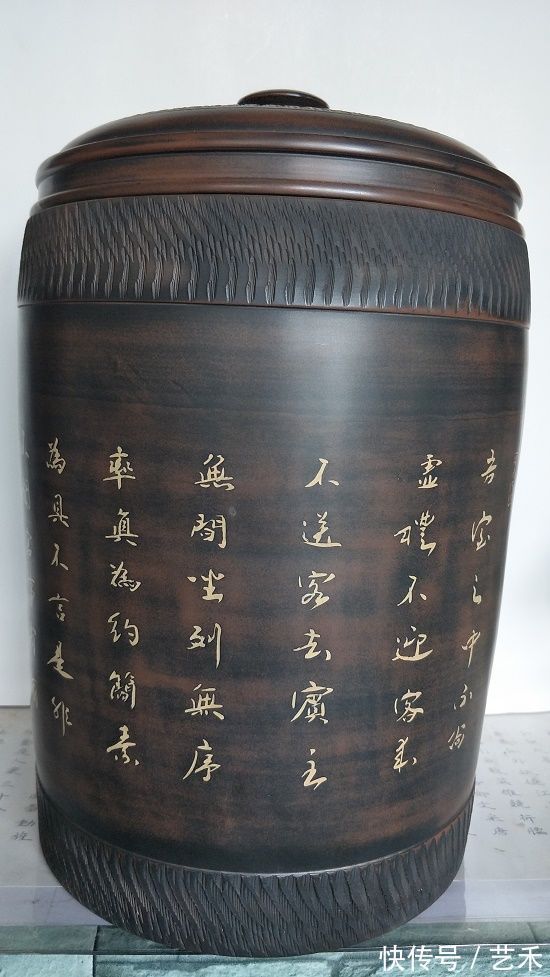 吾室之中不尚
虛禮不迎客来
不送客去賓主
無間坐列無序
率真為約簡素
為具不言是非
快传号/艺禾